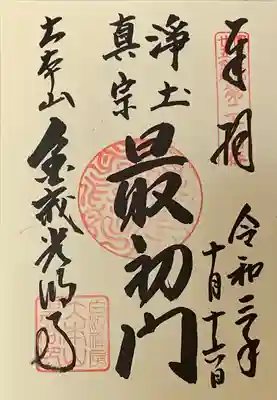 奉拝
令和三年
十月十六日
浄土
真宗
最初門
大本山
金戒光明寺